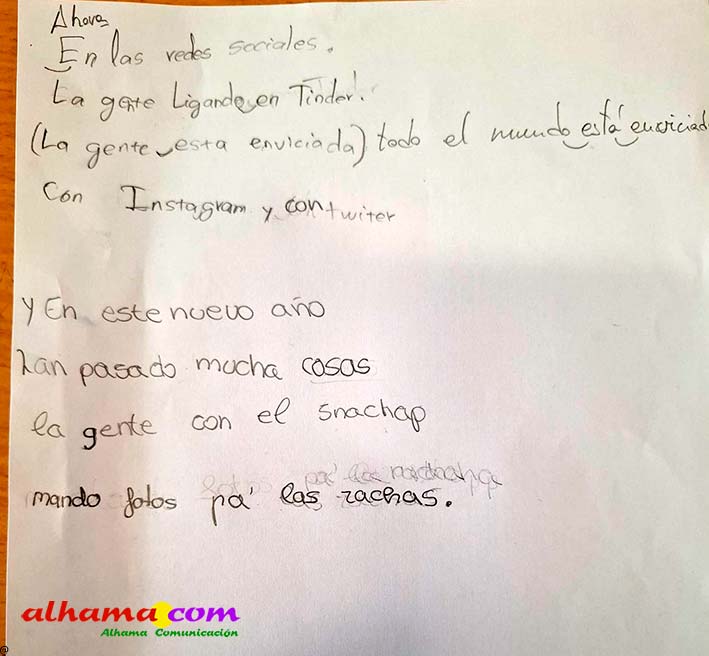 Ahora
En las redes sociales.
La gente Ligando en Tinder.
(La gente esta enviciada) todo el mundo está enviciad
Con Instagram y con twiter
y En este nuevo año
han pasado mucha cosas
la gente con el snachap
mando fotos pa' las rachas.
alhama.com
Alhama Comunicación
@